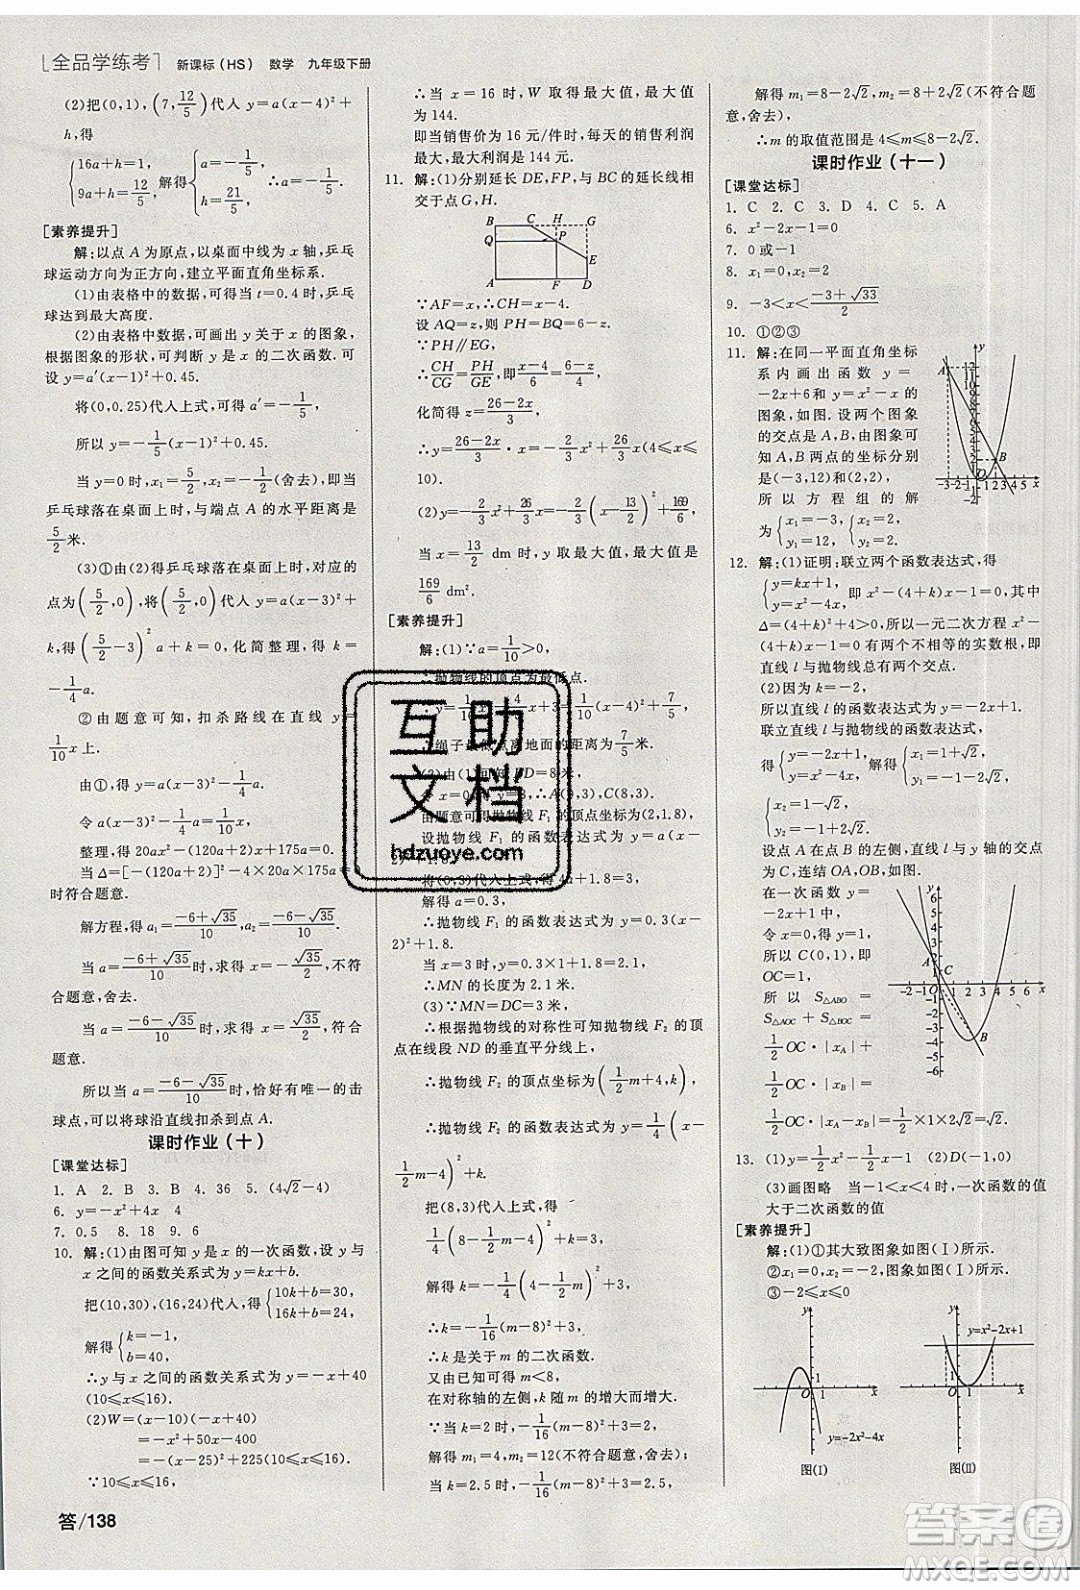 全品学练考 新课标(HS) 数学 九年级下册
(2)把(0,1),(7,12/5)代入 y=a(x-6)²+
h,得
{16a+h=1, 9a+h=12/5, 解得{a=-1/5, h=21/5, ∴a=-1/5.
[素养提升]
解:以点 A 为原点,以桌面中线为 x 轴,乒乓
球运动方向为正方向,建立平面直角坐标系.
(1)由表格中的数据,可得当 t=0.4 时,乒乓
球达到最大高度.
(2)由表格中数据,可画出 y 关于 x 的图象,
根据图象的形状,可判断 y 是 x 的二次函数.可
设 y=a′(x-1)²+0.45.
将(0,0.25)代入上式,可得 a′=-1/5,
所以 y=-1/5(x-1)²+0.45.
当 y=0 时,x=5/2或x=-1/2(舍去),即
乒乓球落在桌面时,与端点 A 的水平距离是
5/2米.
(3)①由(2)得乒乓球落在桌面上时,对应的
点为(5/2,0),将(5/2,0)代入 y=a(x-3)²+
k,得(5/2-3)²a+k=0,化简整理,得 k=
-1/4a.
②由题意可知,扣杀路线在直线 y=
1/10x上.
由①,得 y=a(x-3)²-1/4a.
令a(x-3)²-1/4a=1/10x,
整理,得 20ax²-(120a+2)x+175a=0.
当 Δ=[-(120a+2)]²-4×20a×175a=0
时符合题意.
解方程,得a₁=(-6+√35)/10,a₂=(-6-√35)/10.
当 a=(-6+√35)/10时,求得x=-√35/2,不符
合题意,舍去.
当 a=(-6-√35)/10时,求得x=√35/2,符合
题意.
所以当 a=(-6-√35)/10时,恰好有唯一的击
球点,可以将球沿直线扣杀到点 A.
课时作业(十)
[课堂达标]
1. A 2. B 3. B 4. 36 5. (4√2-4)
6. y=-x²+4x 4
7. 0.5 8. 18 9. 6
10. 解:(1)由图可知 y 是 x 的一次函数,设 y 与
x 之间的函数关系式为 y=kx+b.
把(10,30),(16,24)代入,得{10k+b=30, 16k+b=24,
解得{k=-1, b=40,
∴y 与 x 之间的函数关系式为 y=-x+40
(10≤x≤16).
(2)W=(x-10)(-x+40)
=-x²+50x-400
=-(x-25)²+225(10≤x≤16).
∵10≤x≤16,
∴当 x=16 时,W 取得最大值,最大值
为 144.
即当销售价为 16 元/件时,每天的销售利润
最大,最大利润是 144 元.
11. 解:(1)分别延长 DE,FP,与 BC 的延长线相
交于点 G,H.
B C H G
Q P
E
A F D
∵AF=x,∴CH=x-4.
设 AQ=z,则 PH=BQ=6-z.
∵PH∥EG,
∴CH/CG=PH/GE,即(x-4)/6=(6-z)/4,
化简得 z=(26-2x)/3,
∴y=(26-2x)/3·x=-2/3x²+26/3x(4≤x≤
10).
(2)y=-2/3x²+26/3x=-2/3(x-13/2)²+169/6,
当 x=13/2 dm 时,y 取最大值,最大值是
169/6 dm².
[素养提升]
解:(1)∵a=1/10>0,
∴抛物线的顶点为最低点.
∵y=1/10x²-4/5x+3=1/10(x-4)²+7/5,
∴绳子最低点离地面的距离为7/5米.
(2)由(1)可知,BD=8米,
令x=0,得 y=3,∴A(0,3),C(8,3).
由题意可得抛物线 F₁ 的顶点坐标为(2,1.8),
设抛物线 F₁ 的函数表达式为 y=a(x-
2)²+1.8.
将(0,3)代入上式,得4a+1.8=3,
解得a=0.3,
∴抛物线 F₁ 的函数表达式为 y=0.3(x-
2)²+1.8.
当x=3时,y=0.3×1+1.8=2.1,
∴MN 的长度为 2.1 米.
(3)∵MN=DC=3,
∴根据抛物线的对称性可知抛物线 F₂ 的顶
点在线段 ND 的垂直平分线上,
∴抛物线 F₂ 的顶点坐标为(1/2m+4,k),
∴抛物线 F₂ 的函数表达式为 y=1/4(x-
1/2m-4)²+k.
把(8,3)代入得,
1/4(8-1/2m-4)²+k=3,
解得 k=-1/4(4-1/2m)²+3,
∴k=-1/16(m-8)²+3,
∴k 是关于 m 的二次函数.
又由已知得 m<8,
在对称轴的左侧,k 随 m 的增大而增大.
∵当 k=2 时,-1/16(m-8)²+3=2,
解得 m₁=4,m₂=12(不符合题意,舍去);
当 k=2.5 时,-1/16(m-8)²+3=2.5,
解得 m₁=8-2√2,m₂=8+2√2(不符合题
意,舍去),
∴m 的取值范围是 4≤m≤8-2√2.
课时作业(十一)
[课堂达标]
1. C 2. C 3. D 4. C 5. A
6. x²-2x-1=0
7. 0 或-1
8. x₁=0,x₂=2
9. -3<x<(-3+√33)/2
10. ①②③
11. 解:在同一平面直角坐标
系内画出函数 y=
-2x+6和y=x²的
图象,如图.设两个图象
的交点是 A,B,由图象可
知 A,B 两点的坐标分别
是(-3,12)和(2,2),
所以方程组的解
为{x₁=-3, y₁=12, {x₂=2, y₂=2.
12. 解:(1)证明:联立两个函数表达式,得
{y=kx+1, y=x²-4x, 即 x²-(4+k)x-1=0,
Δ=(4+k)²+4>0,所以一元二次方程 x²-
(4+k)x-1=0 有两个不相等的实数根,即
直线 l 与抛物线总有两个交点.
(2)因为 k=-2,
所以直线 l 的函数表达式为 y=-2x+1,
得{y=x²-4x, y=-2x+1, 解得{x₁=1-√2, y₁=-1+2√2,
{x₂=1+√2, y₂=-1-2√2.
设点 A 在点 B 的左侧,直线 l 与 y 轴的交点
为 C,连结 OA,OB,如图.
在一次函数 y=
-2x+1中,
令x=0,得y=1,
所以 C(0,1),即
OC=1,
所以 S△ABO=
S△AOC+S△BOC=
1/2OC·|x_A|+
1/2OC·|x_B|=
1/2OC·|x_A-x_B|=1/2×1×2√2=√2.
13. (1)y=1/2x²-1/2x-1 (2)D(-1,0)
(3)画图略 当-1<x<4时,一次函数的值
大于二次函数的值
[素养提升]
解:(1)①其大致图象如图(Ⅰ)所示.
②x₁=0,x₂=-2,图象如图(Ⅰ)所示.
③-2≤x≤0
y=-x²-2x
y=x²-2x+1
图(Ⅰ) 图(Ⅱ)
互助
文档
hdzuoye.com
答/138
答案圈
MXQE.COM